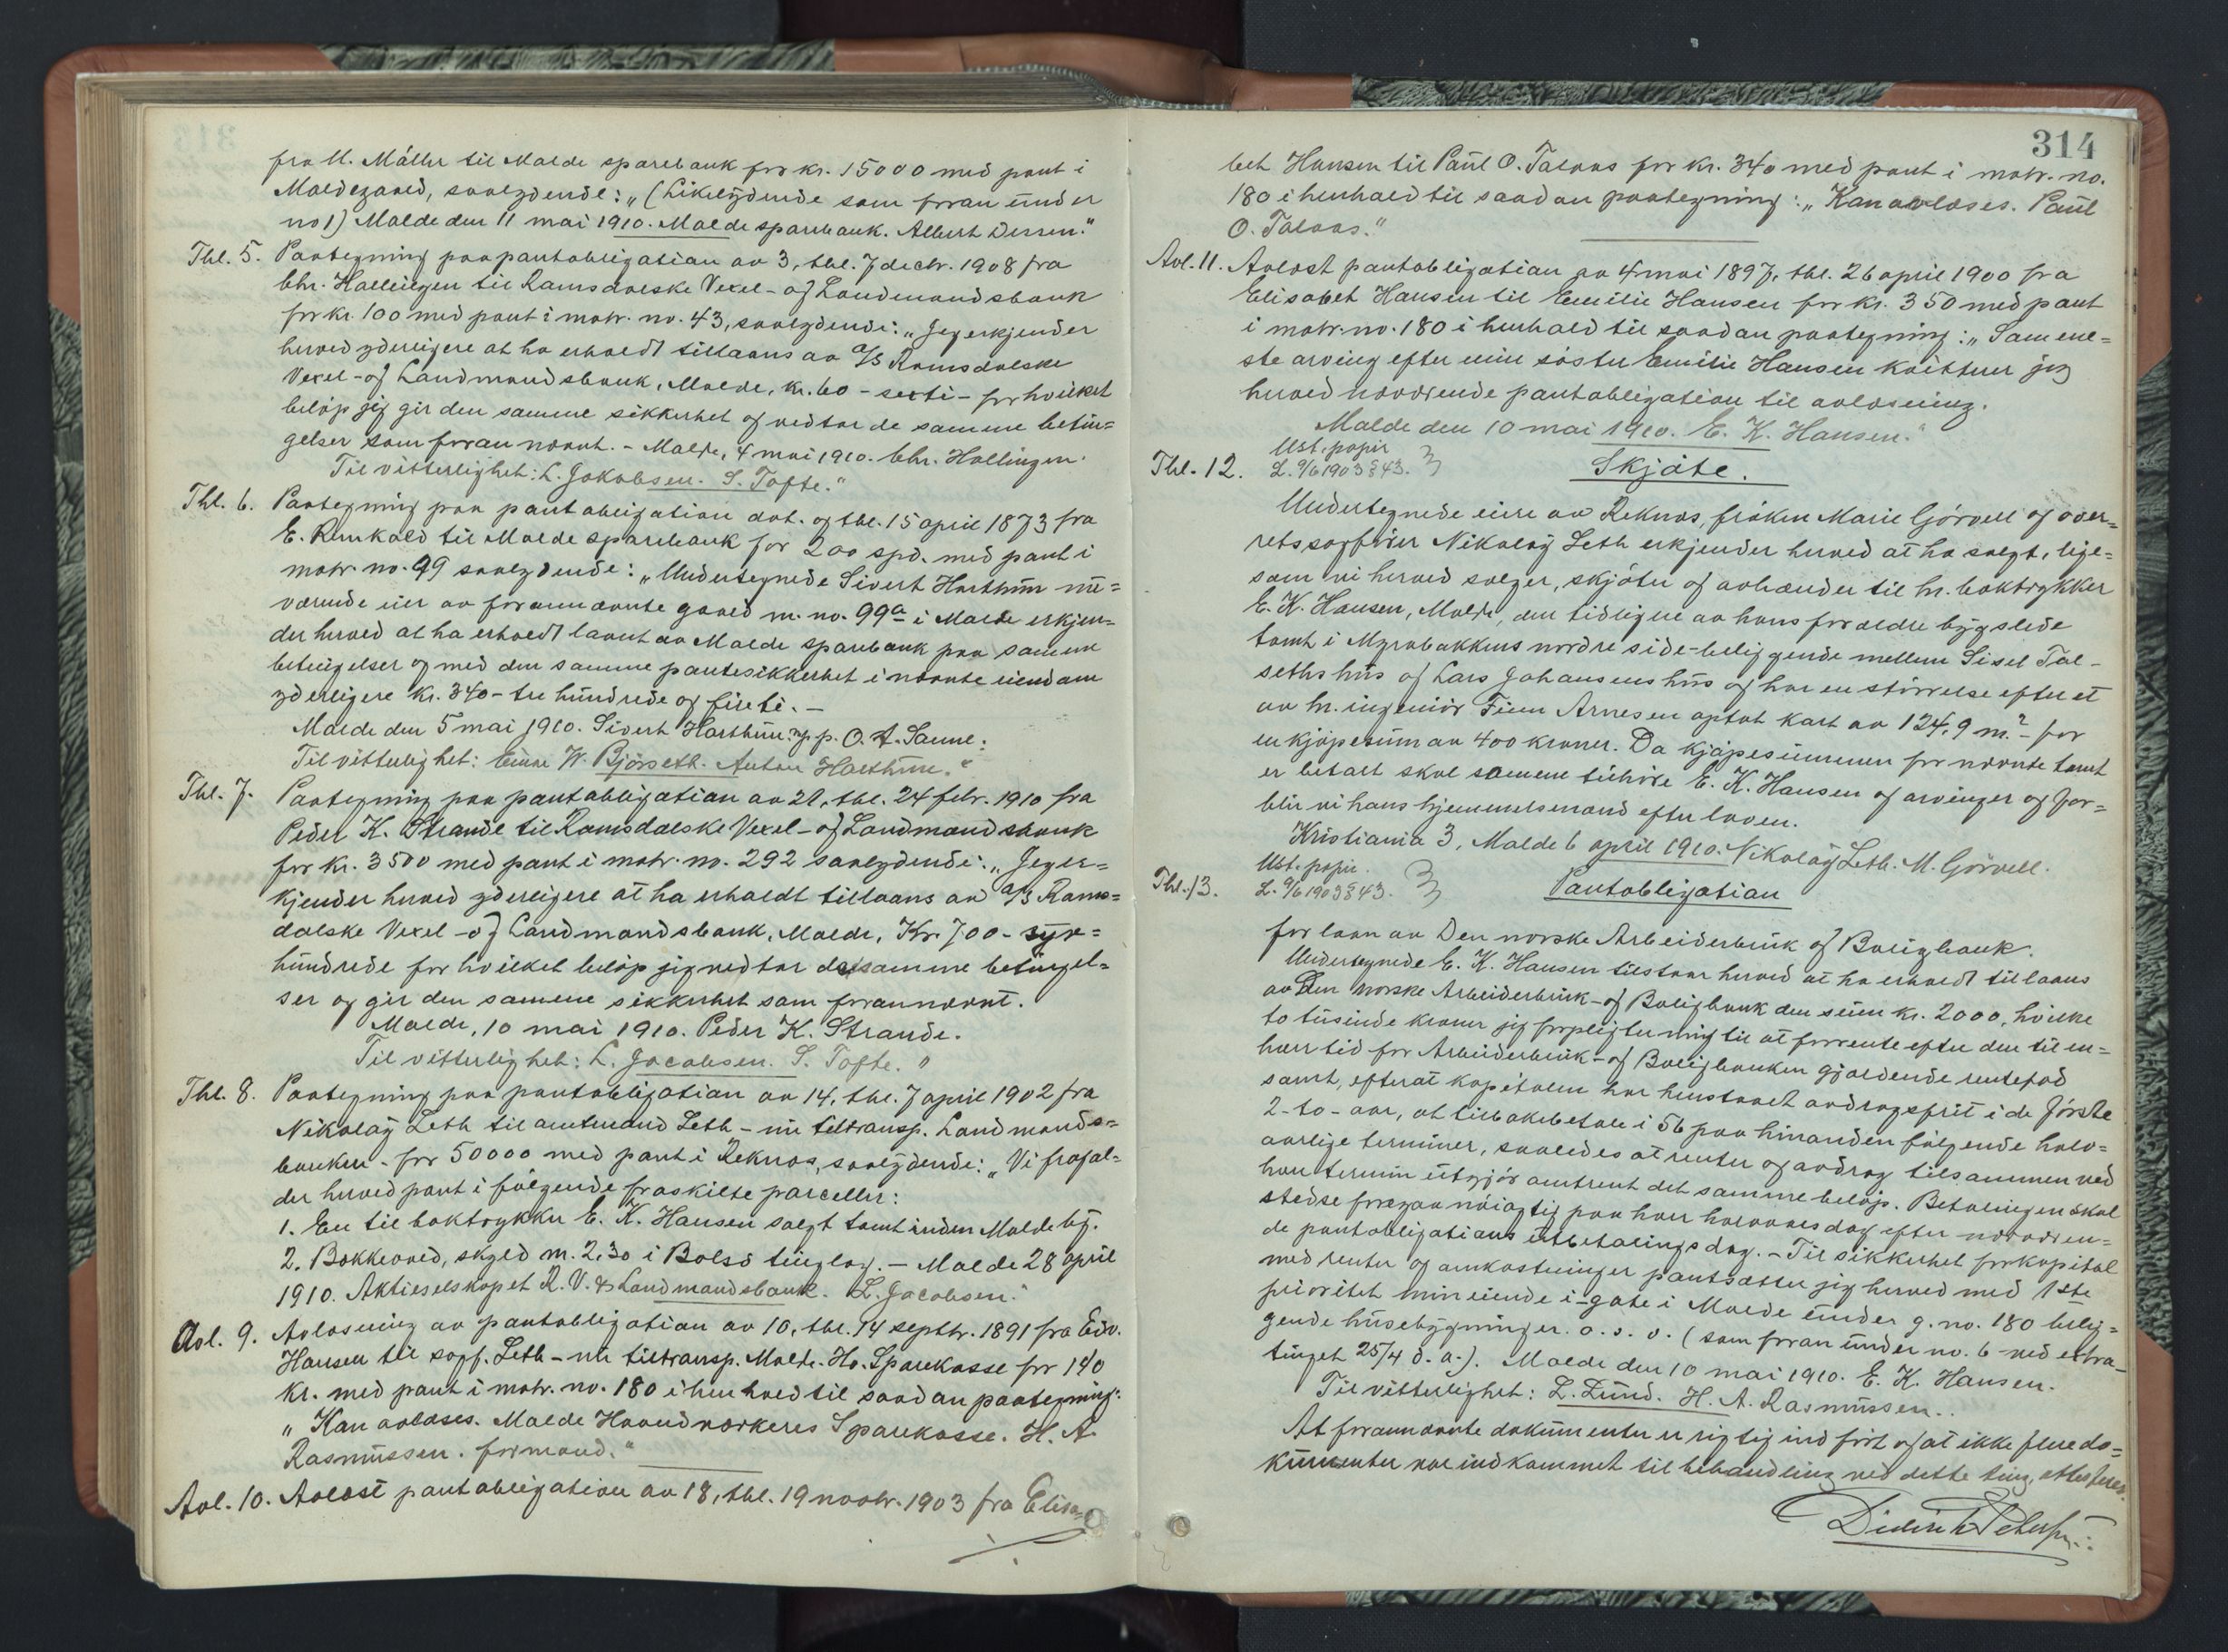 fra M. Måller til Molde sparebank for kr. 15000 med pant i
Moldegaard, saalydende: „(Likelydende som foran under
no 1) Molde den 11 mai 1910. Molde sparebank. Albert Dersen."
Thl. 5. Paategning paa pantobligation av 3, tbl. 7 decbr. 1908 fra
Chr. Hollingen til Romsdalske Vexel- og Landmandsbank
for kr. 100 med pant i matr. no. 43, saalydende: „Jeg erkjender
herved yderligere at ha erholdt tillaans av A/S Romsdalske
Vexel- og Landmandsbank, Molde, kr. 60 - sexti - for hvilket
beløp jeg gir den samme sikkerhet og vedtar de samme betin=
gelser som foran nævnt. - Molde, 4 mai 1910. Chr. Hollingen.
Til vitterlighet: L. Jakobsen. S. Tofte."
Thl. 6. Paategning paa pantobligation dat. og tbl. 15 april 1873 fra
E. Remkold til Molde sparebank for 200 spd. med pant i
matr. no. 99 saalydende: „Undertegnede Sivert Harthun nu=
værende eier av forannævnte gaard m. no. 99a i Molde erkjen=
der herved at ha erholdt laant av Molde sparebank paa samme
betingelser og med den samme pantesikkerhet i nævnte eiendom
yderligere kr. 340 - tre hundrede og firti. -
Molde den 5 mai 1910. Sivert Harthun. m. p. p. O. A. Sanne.
Til vitterlighet: Einar W. Bjørseth. Anton Harthun."
Thl. 7. Paategning paa pantobligation av 21, tbl. 24 febr. 1910 fra
Peder K. Strande til Romsdalske Vexel- og Landmandsbank
for kr. 3500 med pant i matr. no. 292 saalydende: „Jeg er=
kjender herved yderligere at ha erholdt tillaans av A/S Roms=
dalske Vexel- og Landmandsbank, Molde, Kr. 700 - syv=
hundrede for hvilket beløp jeg vedtar de samme betingel=
ser og gir den samme sikkerhet som forannævnt.
Molde, 10 mai 1910. Peder K. Strande.
Til vitterlighet: L. Jacobsen. S. Tofte. "
Thl. 8. Paategning paa pantobligation av 14, tbl. 7 april 1902 fra
Nikolay Leth til amtmand Leth - nu tiltransp. Landmands=
banken - for 50000 med pant i Reknæs, saalydende: „Vi frafal=
der herved pant i følgende fraskilte parceller:
1. En til boktrykker E. K. Hansen solgt tomt inden Molde by.
2. Bakkevold, skyld m. 2,30 i Bolsø tinglag. - Molde 28 april
1910. Aktieselskapet R. V. & Landmandsbank. L. Jacobsen."
Avl. 9. Avløsning av pantobligation av 10, tbl. 14 septbr. 1891 fra Edv.
Hansen til sagf. Leth - nu tiltransp. Molde. Hv. Sparekasse for 140
kr. med pant i matr. no. 180 i henhold til saadan paategning:
„Kan avløses. Molde Haandværkeres Sparekasse. H. A.
Rasmussen. formand."
Avl. 10. Avløst pantobligation av 18, tbl. 19 novbr. 1903 fra Elisa
314
bet Hansen til Paul O. Talaas for kr. 340 med pant i matr. no.
180 i henhold til saadan paategning: „Kan avløses. Paul
O. Talaas."
Avl. 11. Avløst pantobligation av 4 mai 1897, tbl. 26 april 1900 fra
Elisabet Hansen til Emilie Hansen for kr. 350 med pant
i matr. no. 180 i henhold til saadan paategning: „Som ene=
ste arving efter min søster Emilie Hansen kvitterer jeg
herved nærværende pantobligation til avløsning.
Molde den 10 mai 1910. E. K. Hansen."
Ust. papir
Thl. 12. L. 9/6 1903 § 43. Skjøte.
Undertegnede eiere av Reknæs, frøken Marie Gørvell og over=
retssagfører Nikolay Leth erkjender herved at ha solgt, lige=
som vi herved sælger, skjøter og avhænder til hr. boktrykker
E. K. Hansen, Molde, den tidligere av hans forældre bygslede
tomt i Myrabakkens nordre side - beliggende mellem Sisel Tal-
seths hus og Lars Johansens hus og har en størrelse efter et
av hr. ingeniør Finn Arnesen optat kart av 124,9 m.² - for
en kjøpesum av 400 kroner. Da kjøpesummen for nævnte tomt
er betalt skal samme tilhøre E. K. Hansen og arvinger og for=
blir vi hans hjemmelsmænd efter loven.
Kristiania 3, Molde 6 april 1910. Nikolay Leth. M. Gørvell.
Ust. papir.
Thl. 13. L. 9/6 1903 § 43. Pantobligation
for laan av Den norske Arbeiderbruk og Boligbank.
Undertegnede E. K. Hansen tilstaar herved at ha erholdt tillaans
av Den norske Arbeiderbruk- og Boligbank den sum kr. 2000, hvilke
to tusinde kroner jeg forpligter mig til at forrente efter den til en=
hver tid for Arbeiderbruk- og Boligbanken gjældende rentefod
samt, efterat kapitalen har henstaaet avdragsfrit i de første
2 - to - aar, at tilbakebetale i 56 paa hinanden følgende halv=
aarlige terminer, saaledes at renter og avdrag tilsammen ved
hver termin utgjør omtrent det samme beløp. Betalingen skal
stedse foregaa nøiagtig paa hver halvaarsdag efter nærværen=
de pantobligations utbetalingsdag. - Til sikkerhet for kapital
med renter og omkostninger pantsætter jeg herved med 1ste
prioritet min eiende i - gate i Molde under g. no. 180 belig=
gende husebygninger o. s. v. (som foran under no. 6 ved extra-
tinget 25/4 d. a.). Molde den 10 mai 1910. E. K. Hansen.
Til vitterlighet: L. Lund. H. A. Rasmussen.
At forannævnte dokumenter er rigtig indført og at ikke flere do=
kumenter var indkommet til behandling ved dette ting, attesteres.